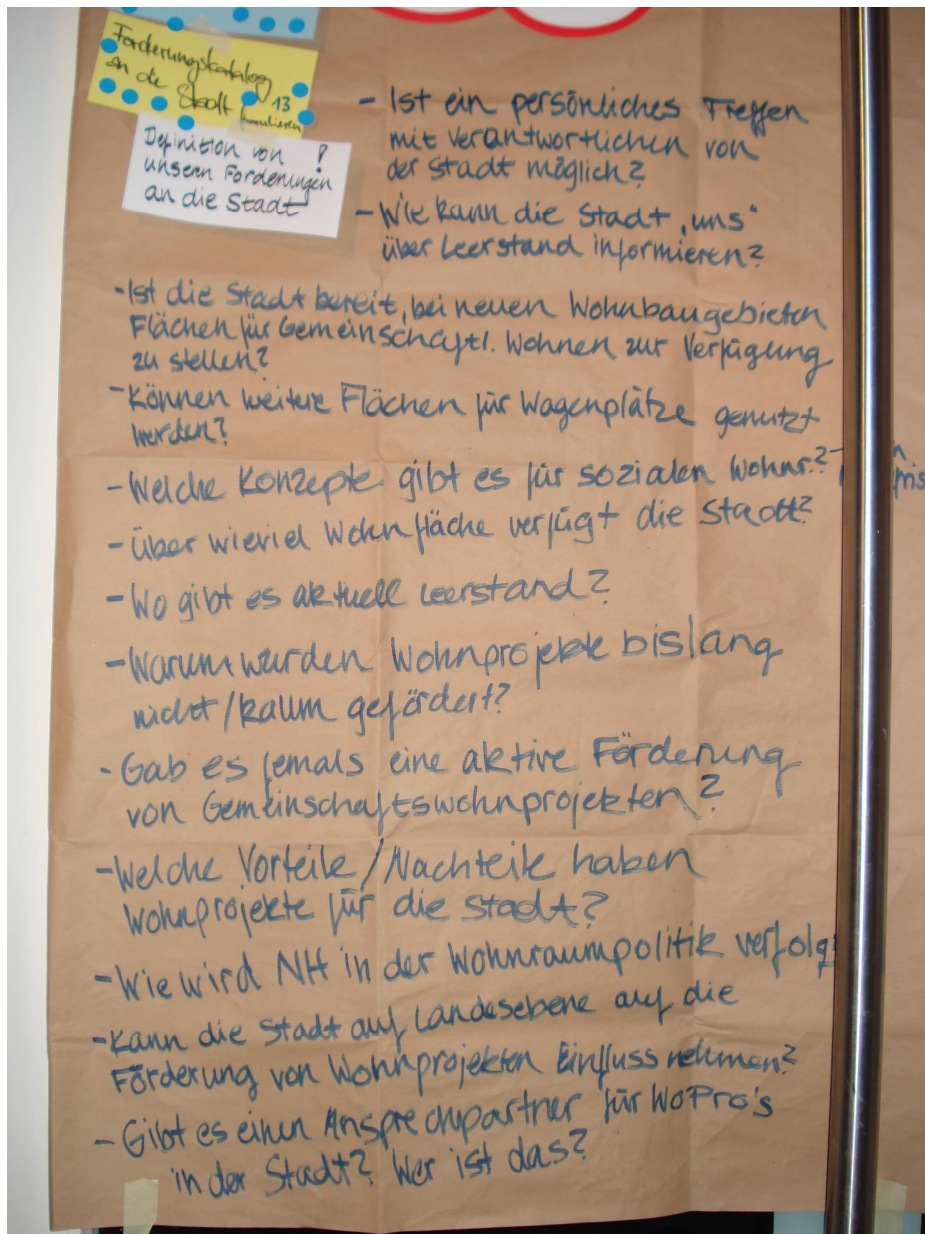 Forderungskatalog
an die
Stadt 13
formulieren
Definition von !
unseren Forderungen
an die Stadt
- Ist ein persönliches Treffen
mit Verantwortlichen von
der Stadt möglich?
- Wie kann die Stadt „uns"
über Leerstand informieren?
- Ist die Stadt bereit, bei neuen Wohnbaugebieten
Flächen für Gemeinschaftl. Wohnen zur Verfügung
zu stellen?
- Können weitere Flächen für Wagenplätze genutzt
werden?
- Welche Konzepte gibt es für sozialen Wohnr.?
- Über wieviel Wohnfläche verfügt die Stadt?
- Wo gibt es aktuell Leerstand?
- Warum wurden Wohnprojekte bislang
nicht/kaum gefördert?
- Gab es jemals eine aktive Förderung
von Gemeinschaftswohnprojekten?
- Welche Vorteile/Nachteile haben
Wohnprojekte für die Stadt?
- Wie wird NH in der Wohnraumpolitik verfolg
- Kann die Stadt auf Landesebene auf die
Förderung von Wohnprojekten Einfluss nehmen?
- Gibt es einen Ansprechpartner für WoPro's
in der Stadt? Wer ist das?